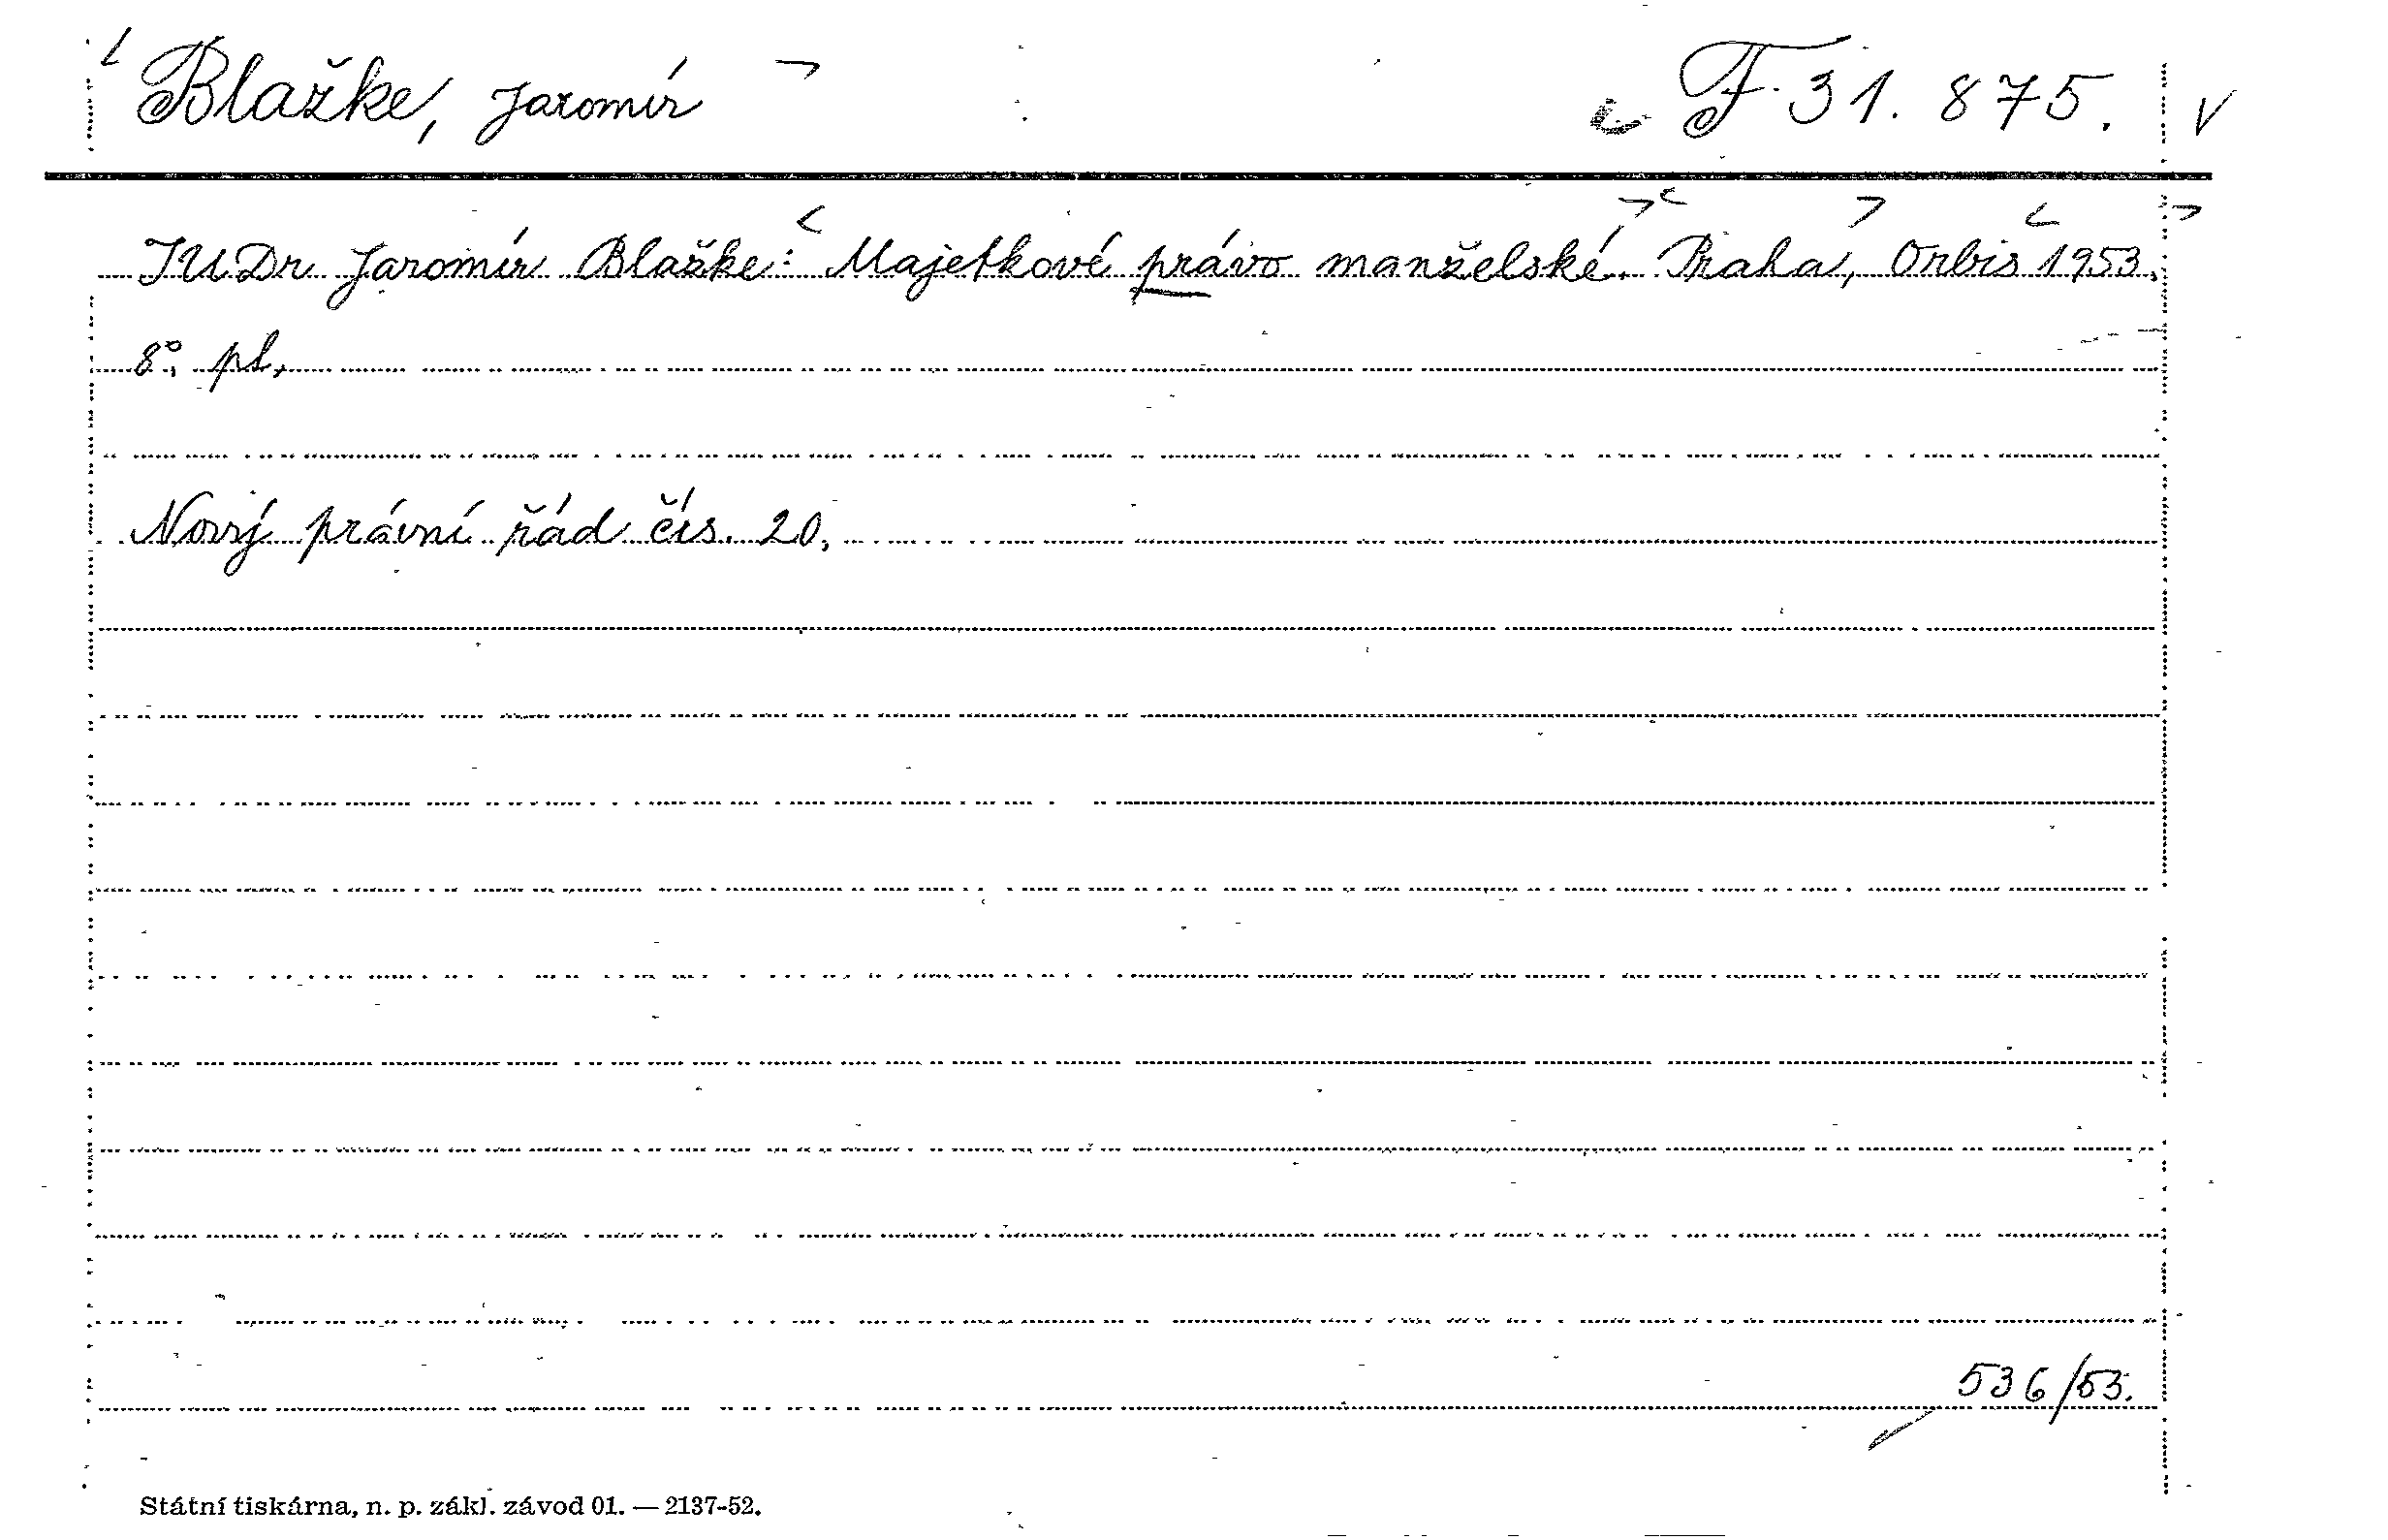 Blažke, Jaromír F 31.875.
JUDr Jaromír Blažke: Majetkové právo manželské. Praha, Orbis 1953.
8°, pl.
Nový právní řád čís. 20.
536/53.
Státní tiskárna, n. p. zákl. závod 01. — 2137-52.